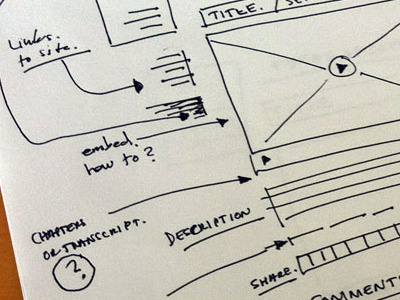 TITLE. / SE
Links.
to site.
embed.
how to?
CHAPTERS
OR TRANSCRIPT.
?
DESCRIPTION
SHARE.
COMMENTS